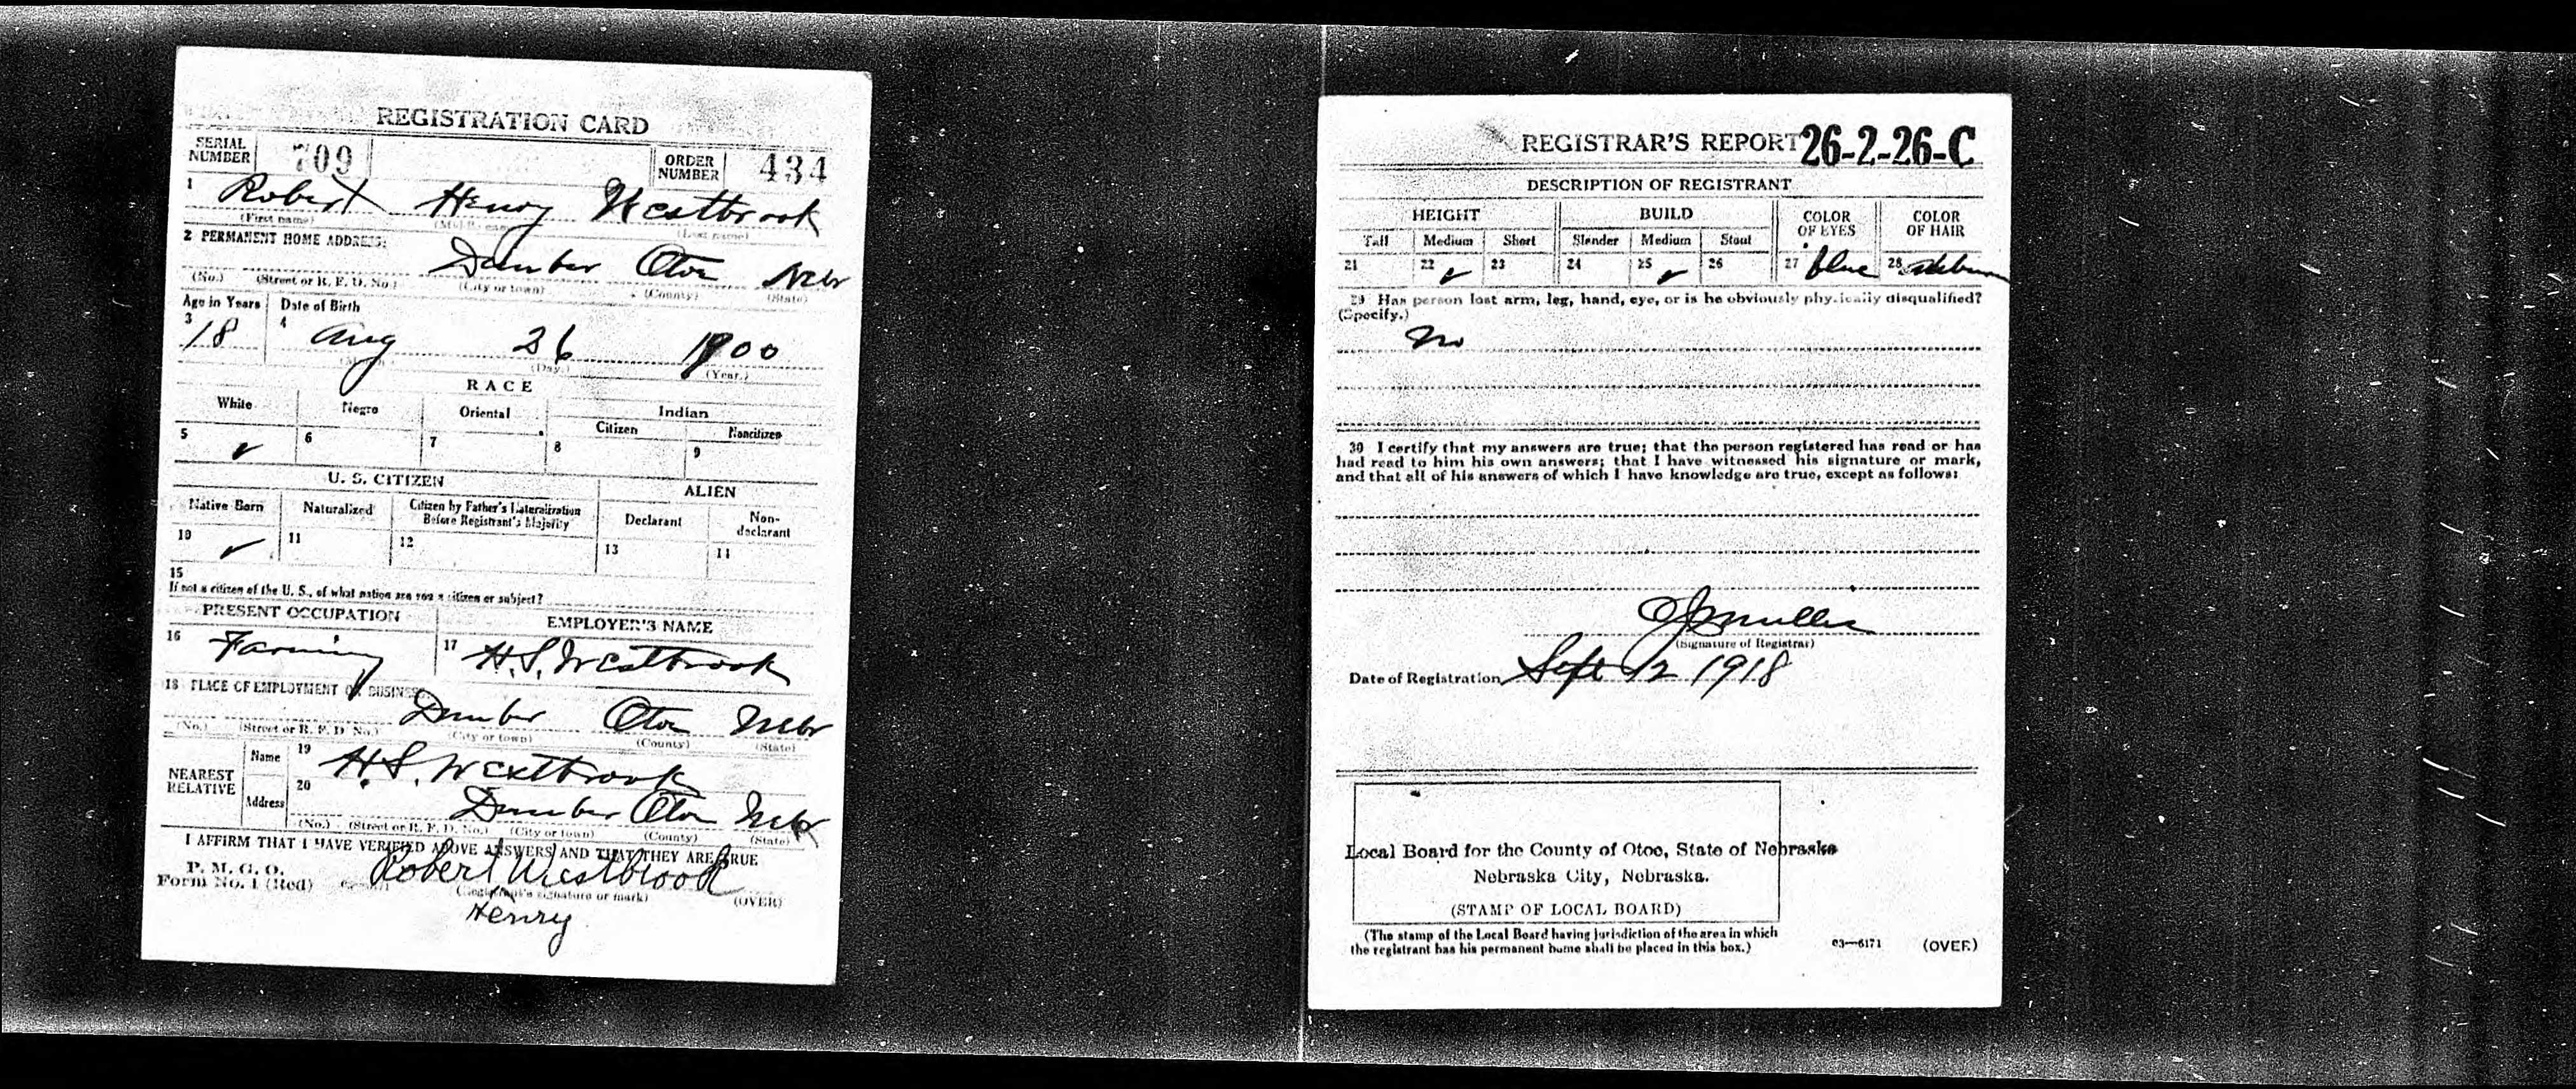 REGISTRATION CARD
SERIAL NUMBER 709 ORDER NUMBER 434
1 Robert Henry Westbrook
(First name) (Middle name) (Last name)
2 PERMANENT HOME ADDRESS:
Dunbar Otoe Nebr
(No.) (Street or R. F. D. No.) (City or town) (County) (State)
Age in Years Date of Birth
3 18 4 Aug 26 1900
(Month) (Day.) (Year.)
RACE
White Negro Oriental Indian
Citizen Noncitizen
5 ✓ 6 7 8 9
U. S. CITIZEN ALIEN
Native Born Naturalized Citizen by Father's Naturalization Before Registrant's Majority Declarant Non-declarant
10 ✓ 11 12 13 14
15
If not a citizen of the U. S., of what nation are you a citizen or subject?
PRESENT OCCUPATION EMPLOYER'S NAME
16 Farming 17 H.S. Westbrook
18 PLACE OF EMPLOYMENT OR BUSINESS:
Dunbar Otoe Nebr
(No.) (Street or R. F. D. No.) (City or town) (County) (State)
NEAREST RELATIVE Name 19 H.S. Westbrook
Address 20 Dunbar Otoe Nebr
(No.) (Street or R. F. D. No.) (City or town) (County) (State)
I AFFIRM THAT I HAVE VERIFIED ABOVE ANSWERS AND THAT THEY ARE TRUE
P. M. G. O.
Form No. 1 (Red) Robert Westbrook
(Registrant's signature or mark) (OVER)
Henry
REGISTRAR'S REPORT 26-2-26-C
DESCRIPTION OF REGISTRANT
HEIGHT BUILD COLOR OF EYES COLOR OF HAIR
Tall Medium Short Slender Medium Stout
21 22 ✓ 23 24 25 ✓ 26 27 blue 28 Auburn
29 Has person lost arm, leg, hand, eye, or is he obviously physically disqualified?
(Specify.)
No
30 I certify that my answers are true; that the person registered has read or has
had read to him his own answers; that I have witnessed his signature or mark,
and that all of his answers of which I have knowledge are true, except as follows:
(Signature of Registrar)
Date of Registration Sept 12 1918
Local Board for the County of Otoe, State of Nebraska
Nebraska City, Nebraska.
(STAMP OF LOCAL BOARD)
(The stamp of the Local Board having jurisdiction of the area in which
the registrant has his permanent home shall be placed in this box.)
03—6171 (OVER)